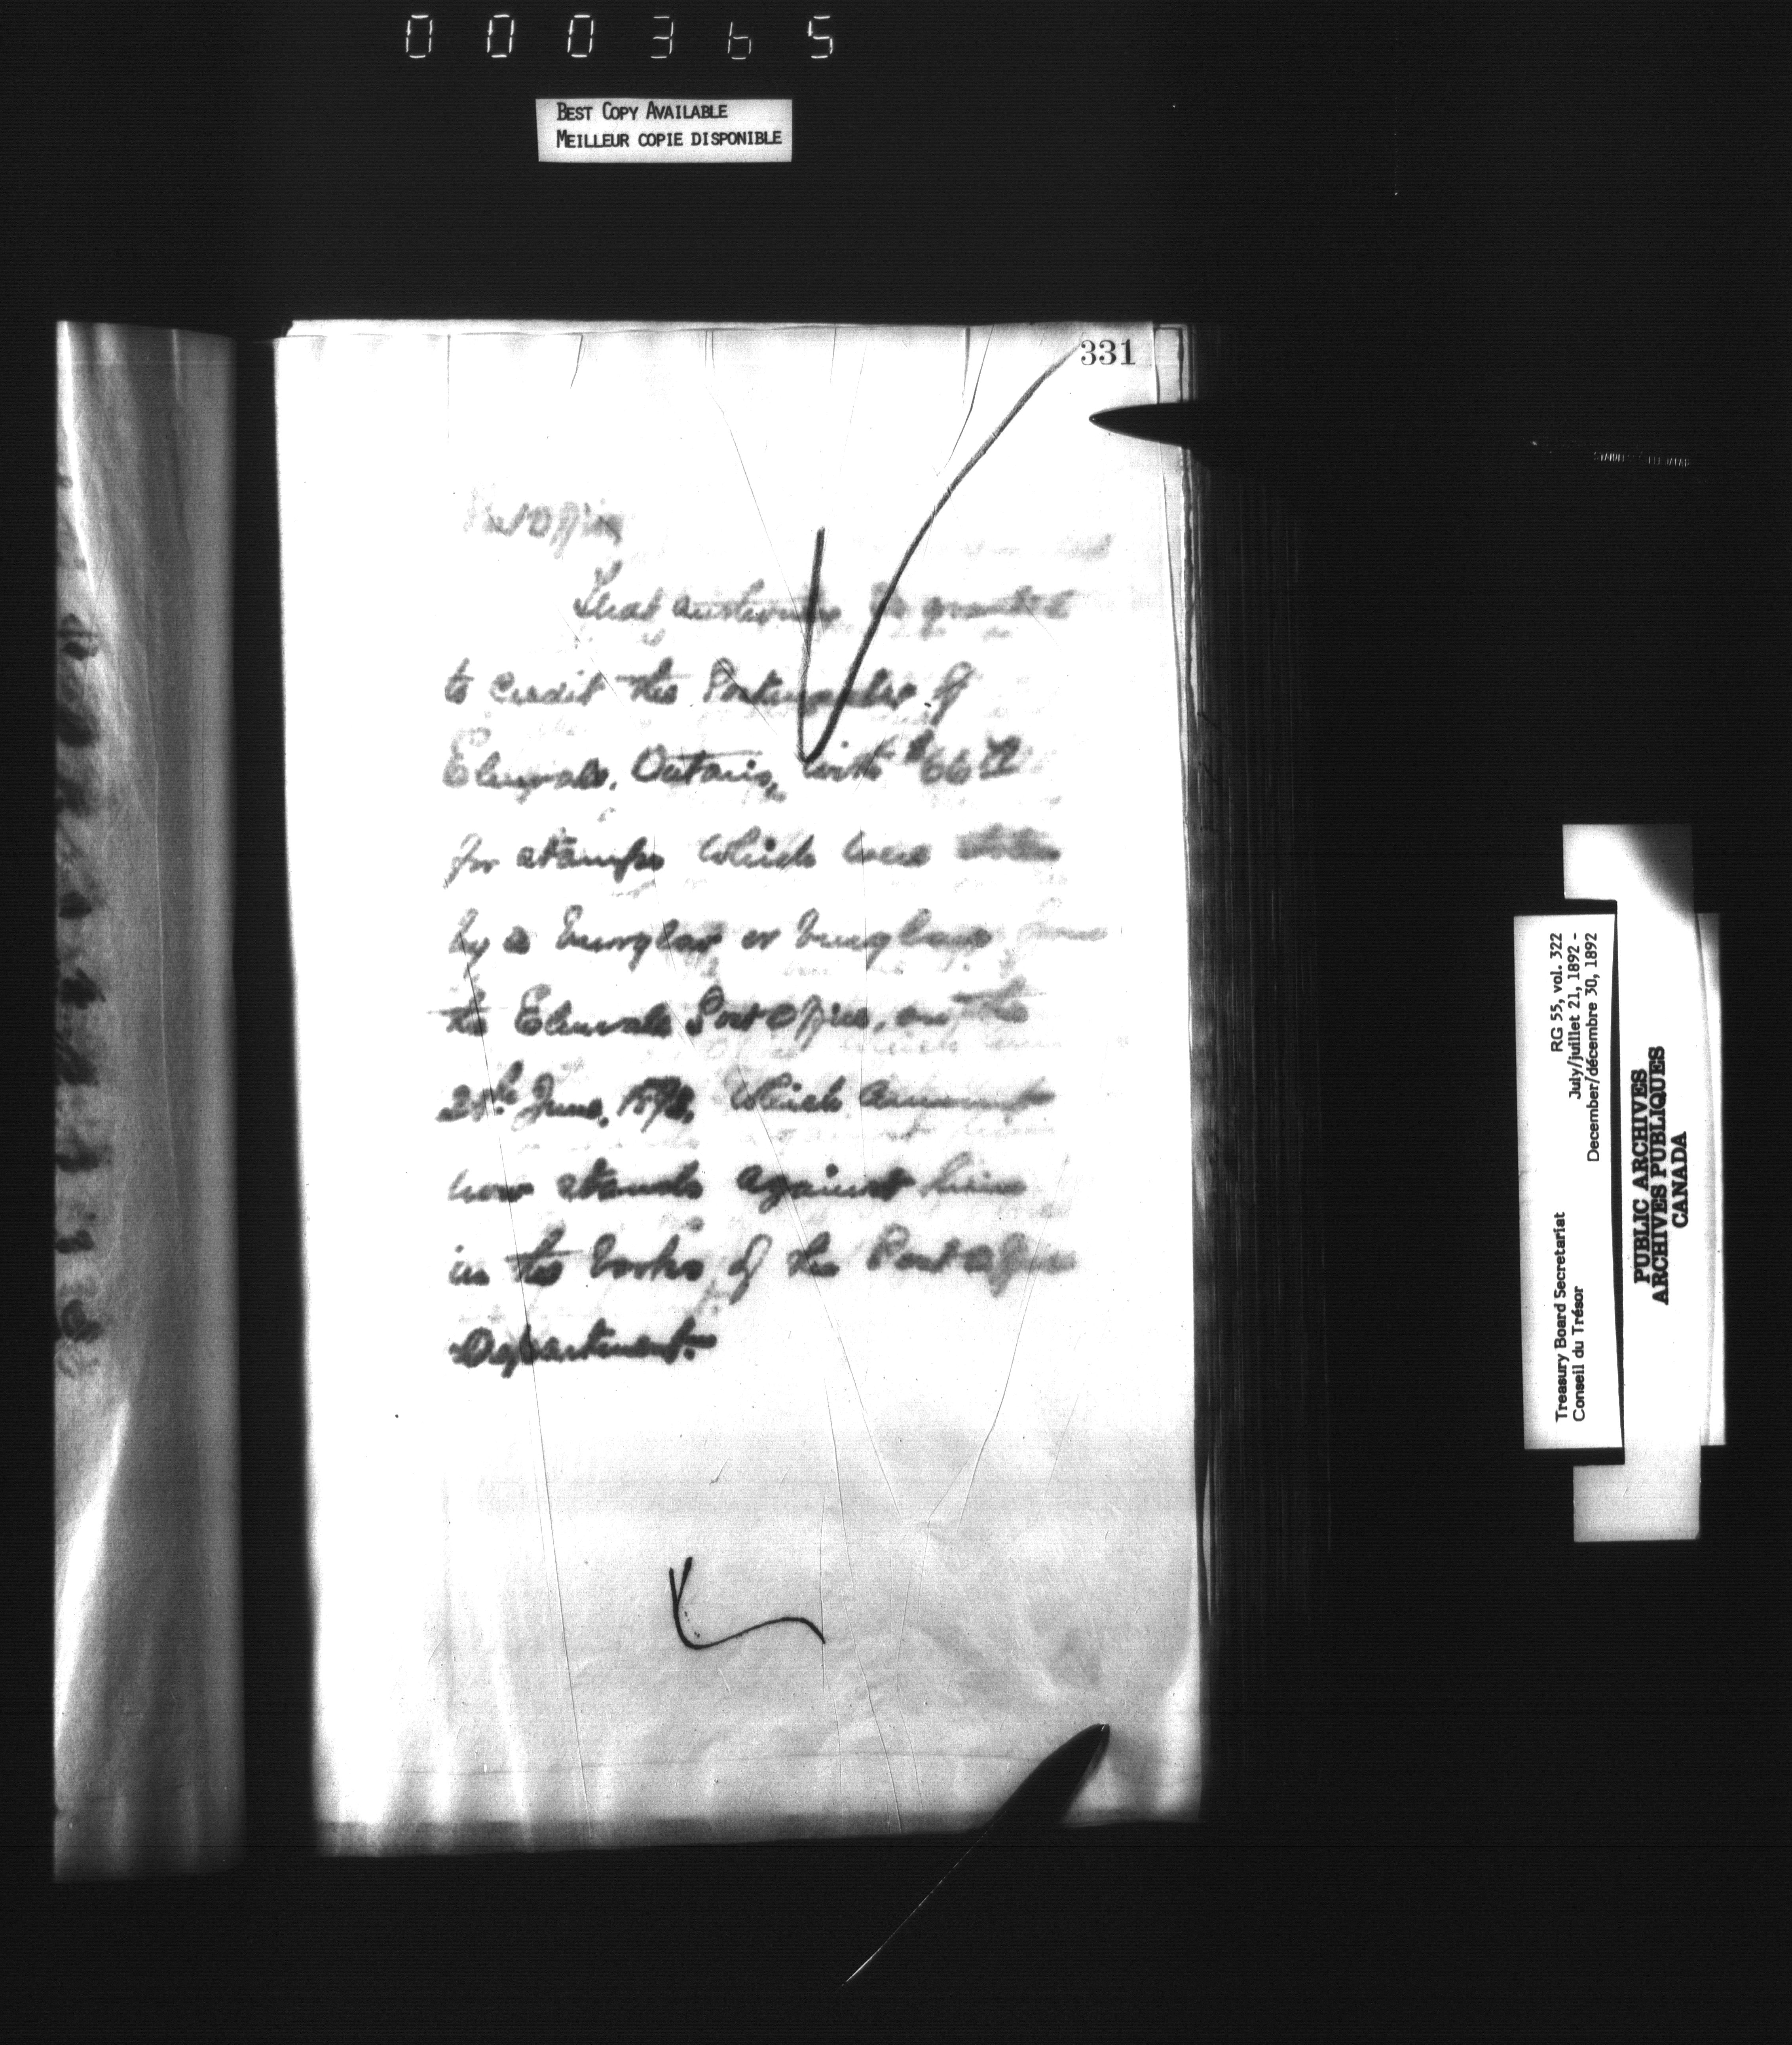 000365
BEST COPY AVAILABLE
MEILLEUR COPIE DISPONIBLE
331
Post Office
That authority be granted
to credit the Postmaster of
Elmvale, Ontario, with $66
for stamps which were stolen
by a burglar or burglars from
the Elmvale Post Office, on the
June, 1892, which amount
now stands against him
in the books of the Post Office
Department.
Treasury Board Secretariat RG 55, vol. 322
Conseil du Trésor July/juillet 21, 1892 -
December/décembre 30, 1892
PUBLIC ARCHIVES
ARCHIVES PUBLIQUES
CANADA